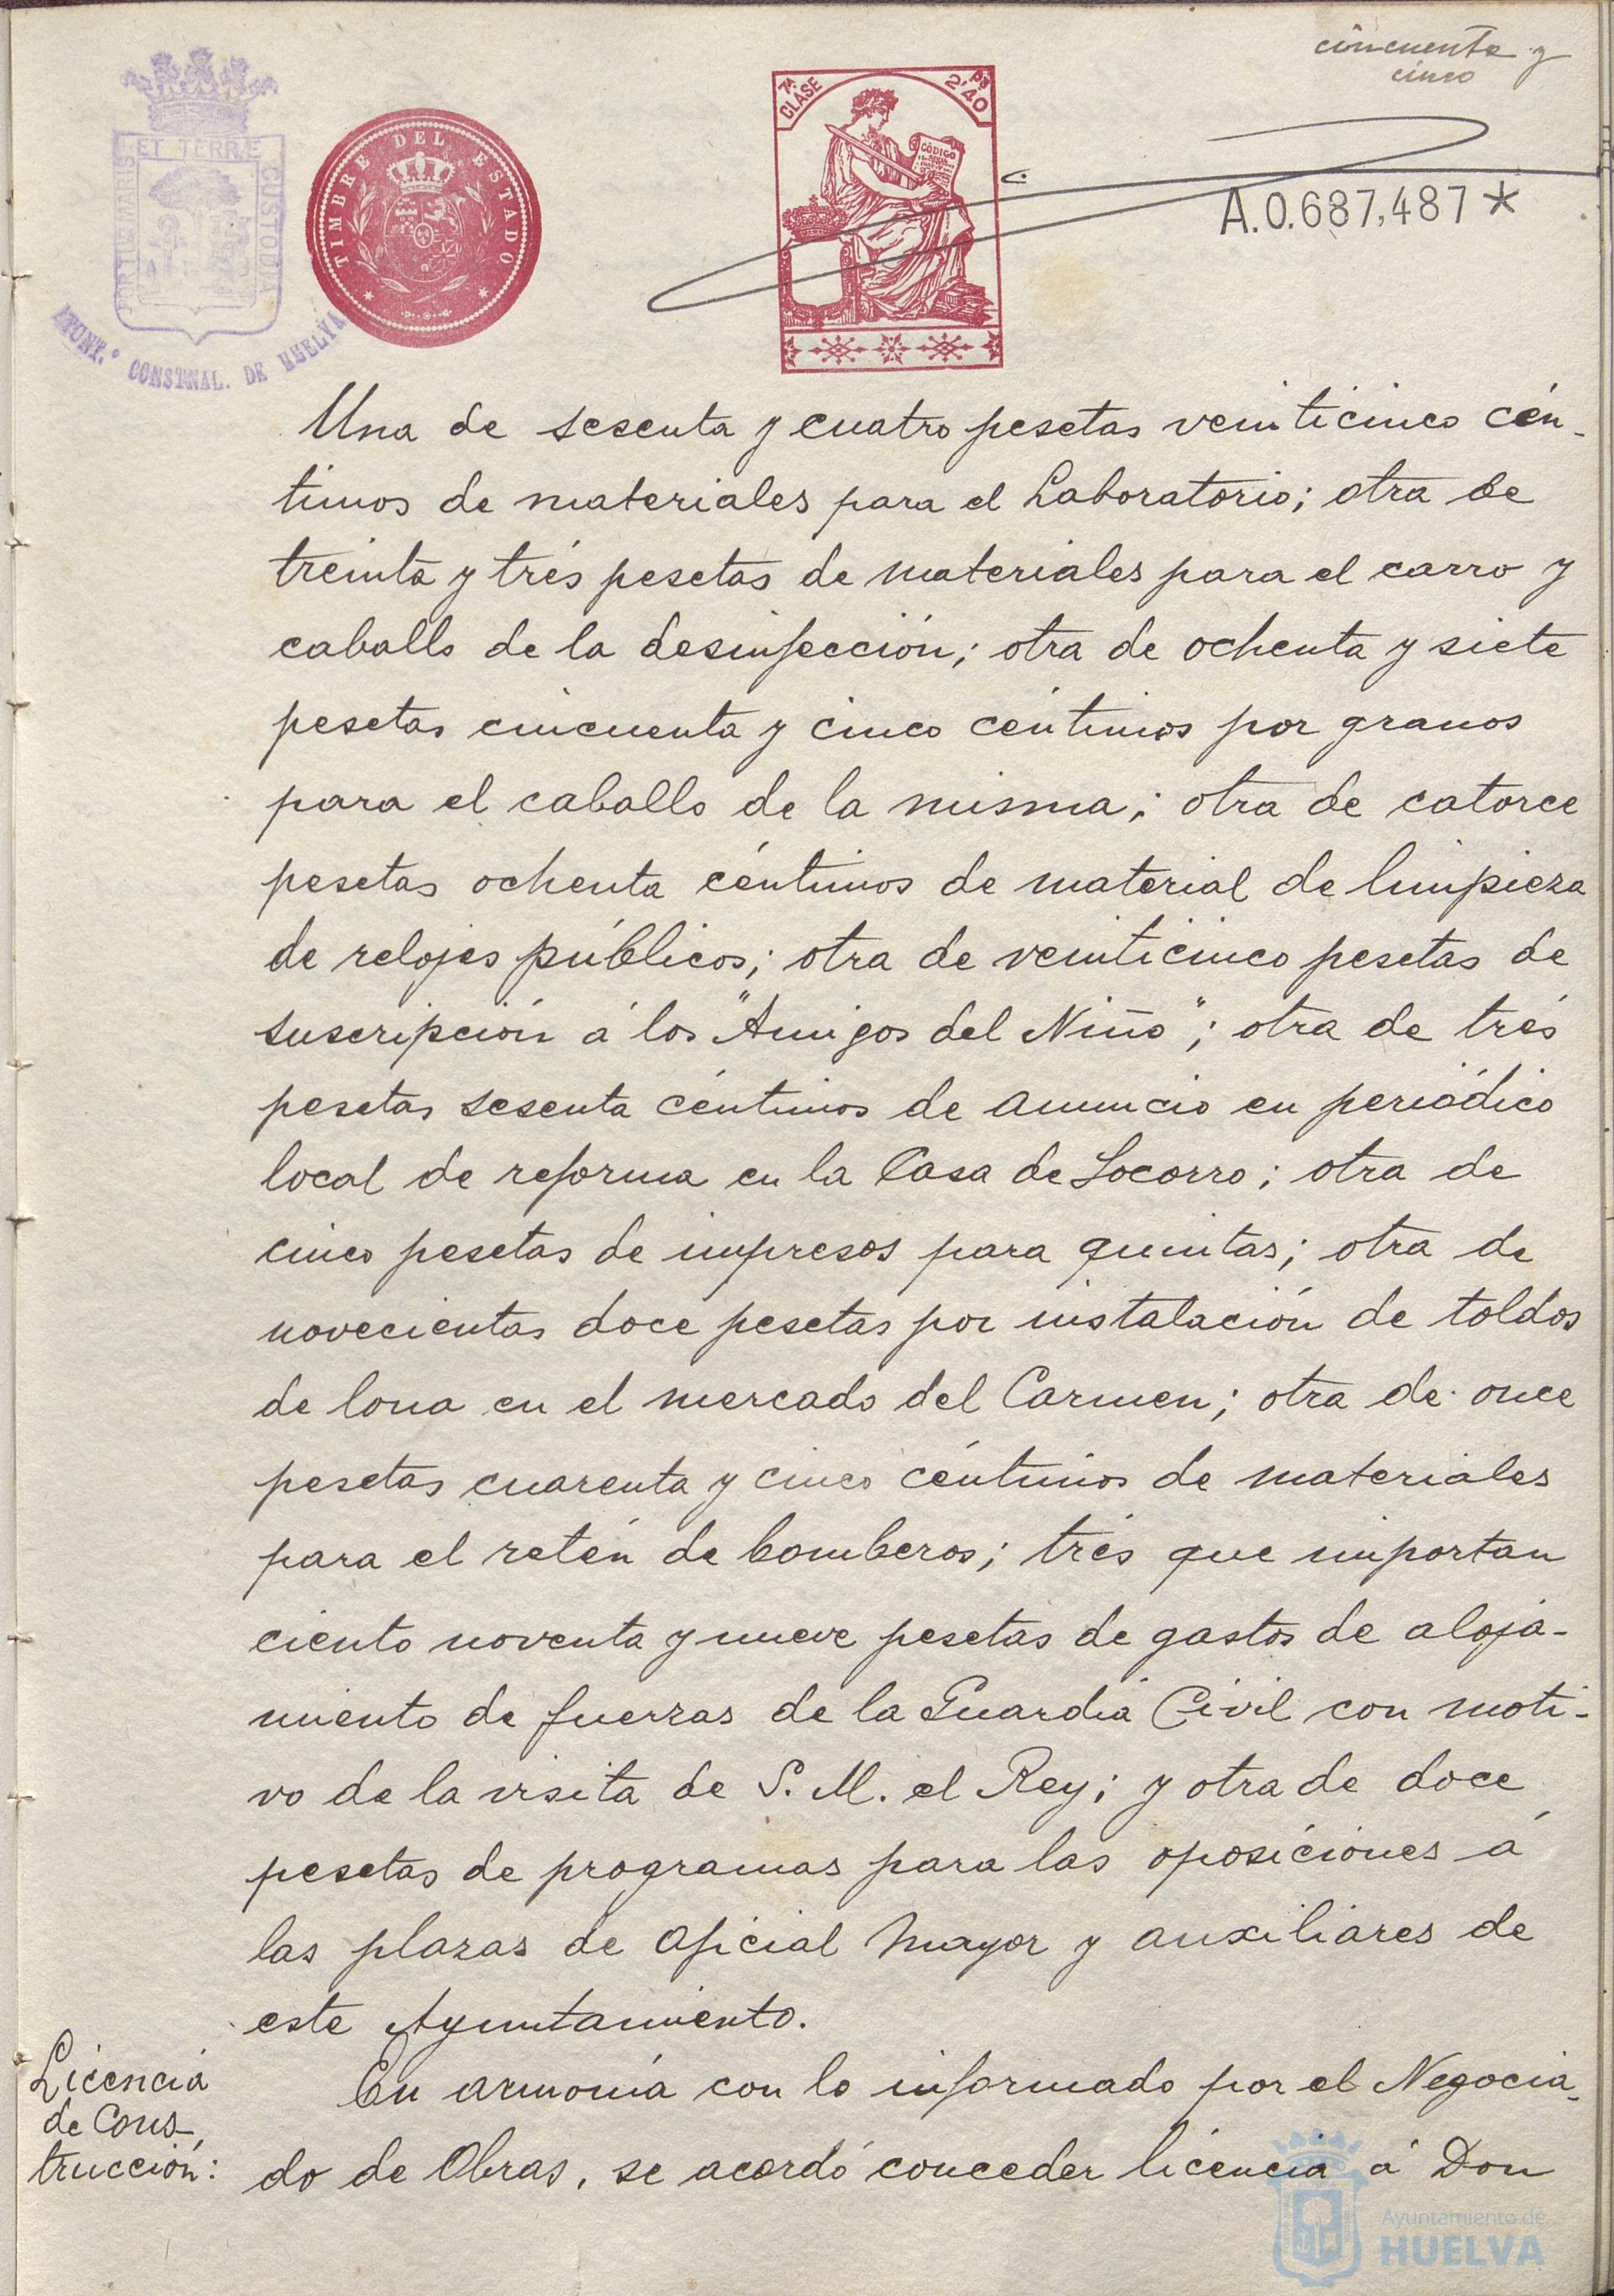 cincuenta y
cinco
PORTUS MARIS ET TERRÆ CUSTODIA
AYUNT.º CONSTNAL. DE HUELVA
TIMBRE DEL ESTADO
7ª CLASE
2'40
CÓDIGO
A.0.687,487*
Una de sesenta y cuatro pesetas veinticinco cén-
timos de materiales para el Laboratorio; otra de
treinta y trés pesetas de materiales para el carro y
caballo de la desinfección; otra de ochenta y siete
pesetas cincuenta y cinco céntimos por granos
para el caballo de la misma; otra de catorce
pesetas ochenta céntimos de material de limpieza
de relojes públicos; otra de veinticinco pesetas de
suscripción á los "Amigos del Niño"; otra de trés
pesetas sesenta céntimos de anuncio en periódico
local de reforma en la Casa de Socorro; otra de
cinco pesetas de impresos para quintas; otra de
novecientas doce pesetas por instalación de toldos
de lona en el mercado del Carmen; otra de once
pesetas cuarenta y cinco céntimos de materiales
para el retén de bomberos; trés que importan
ciento noventa y nueve pesetas de gastos de aloja-
miento de fuerzas de la Guardia Civil con moti-
vo de la visita de S. M. el Rey; y otra de doce
pesetas de programas para las oposiciones á
las plazas de Oficial Mayor y auxiliares de
este Ayuntamiento.
Licencia
de Cons-
trucción:
En armonía con lo informado por el Negocia-
do de Obras, se acordó conceder licencia á Don
Ayuntamiento de
HUELVA